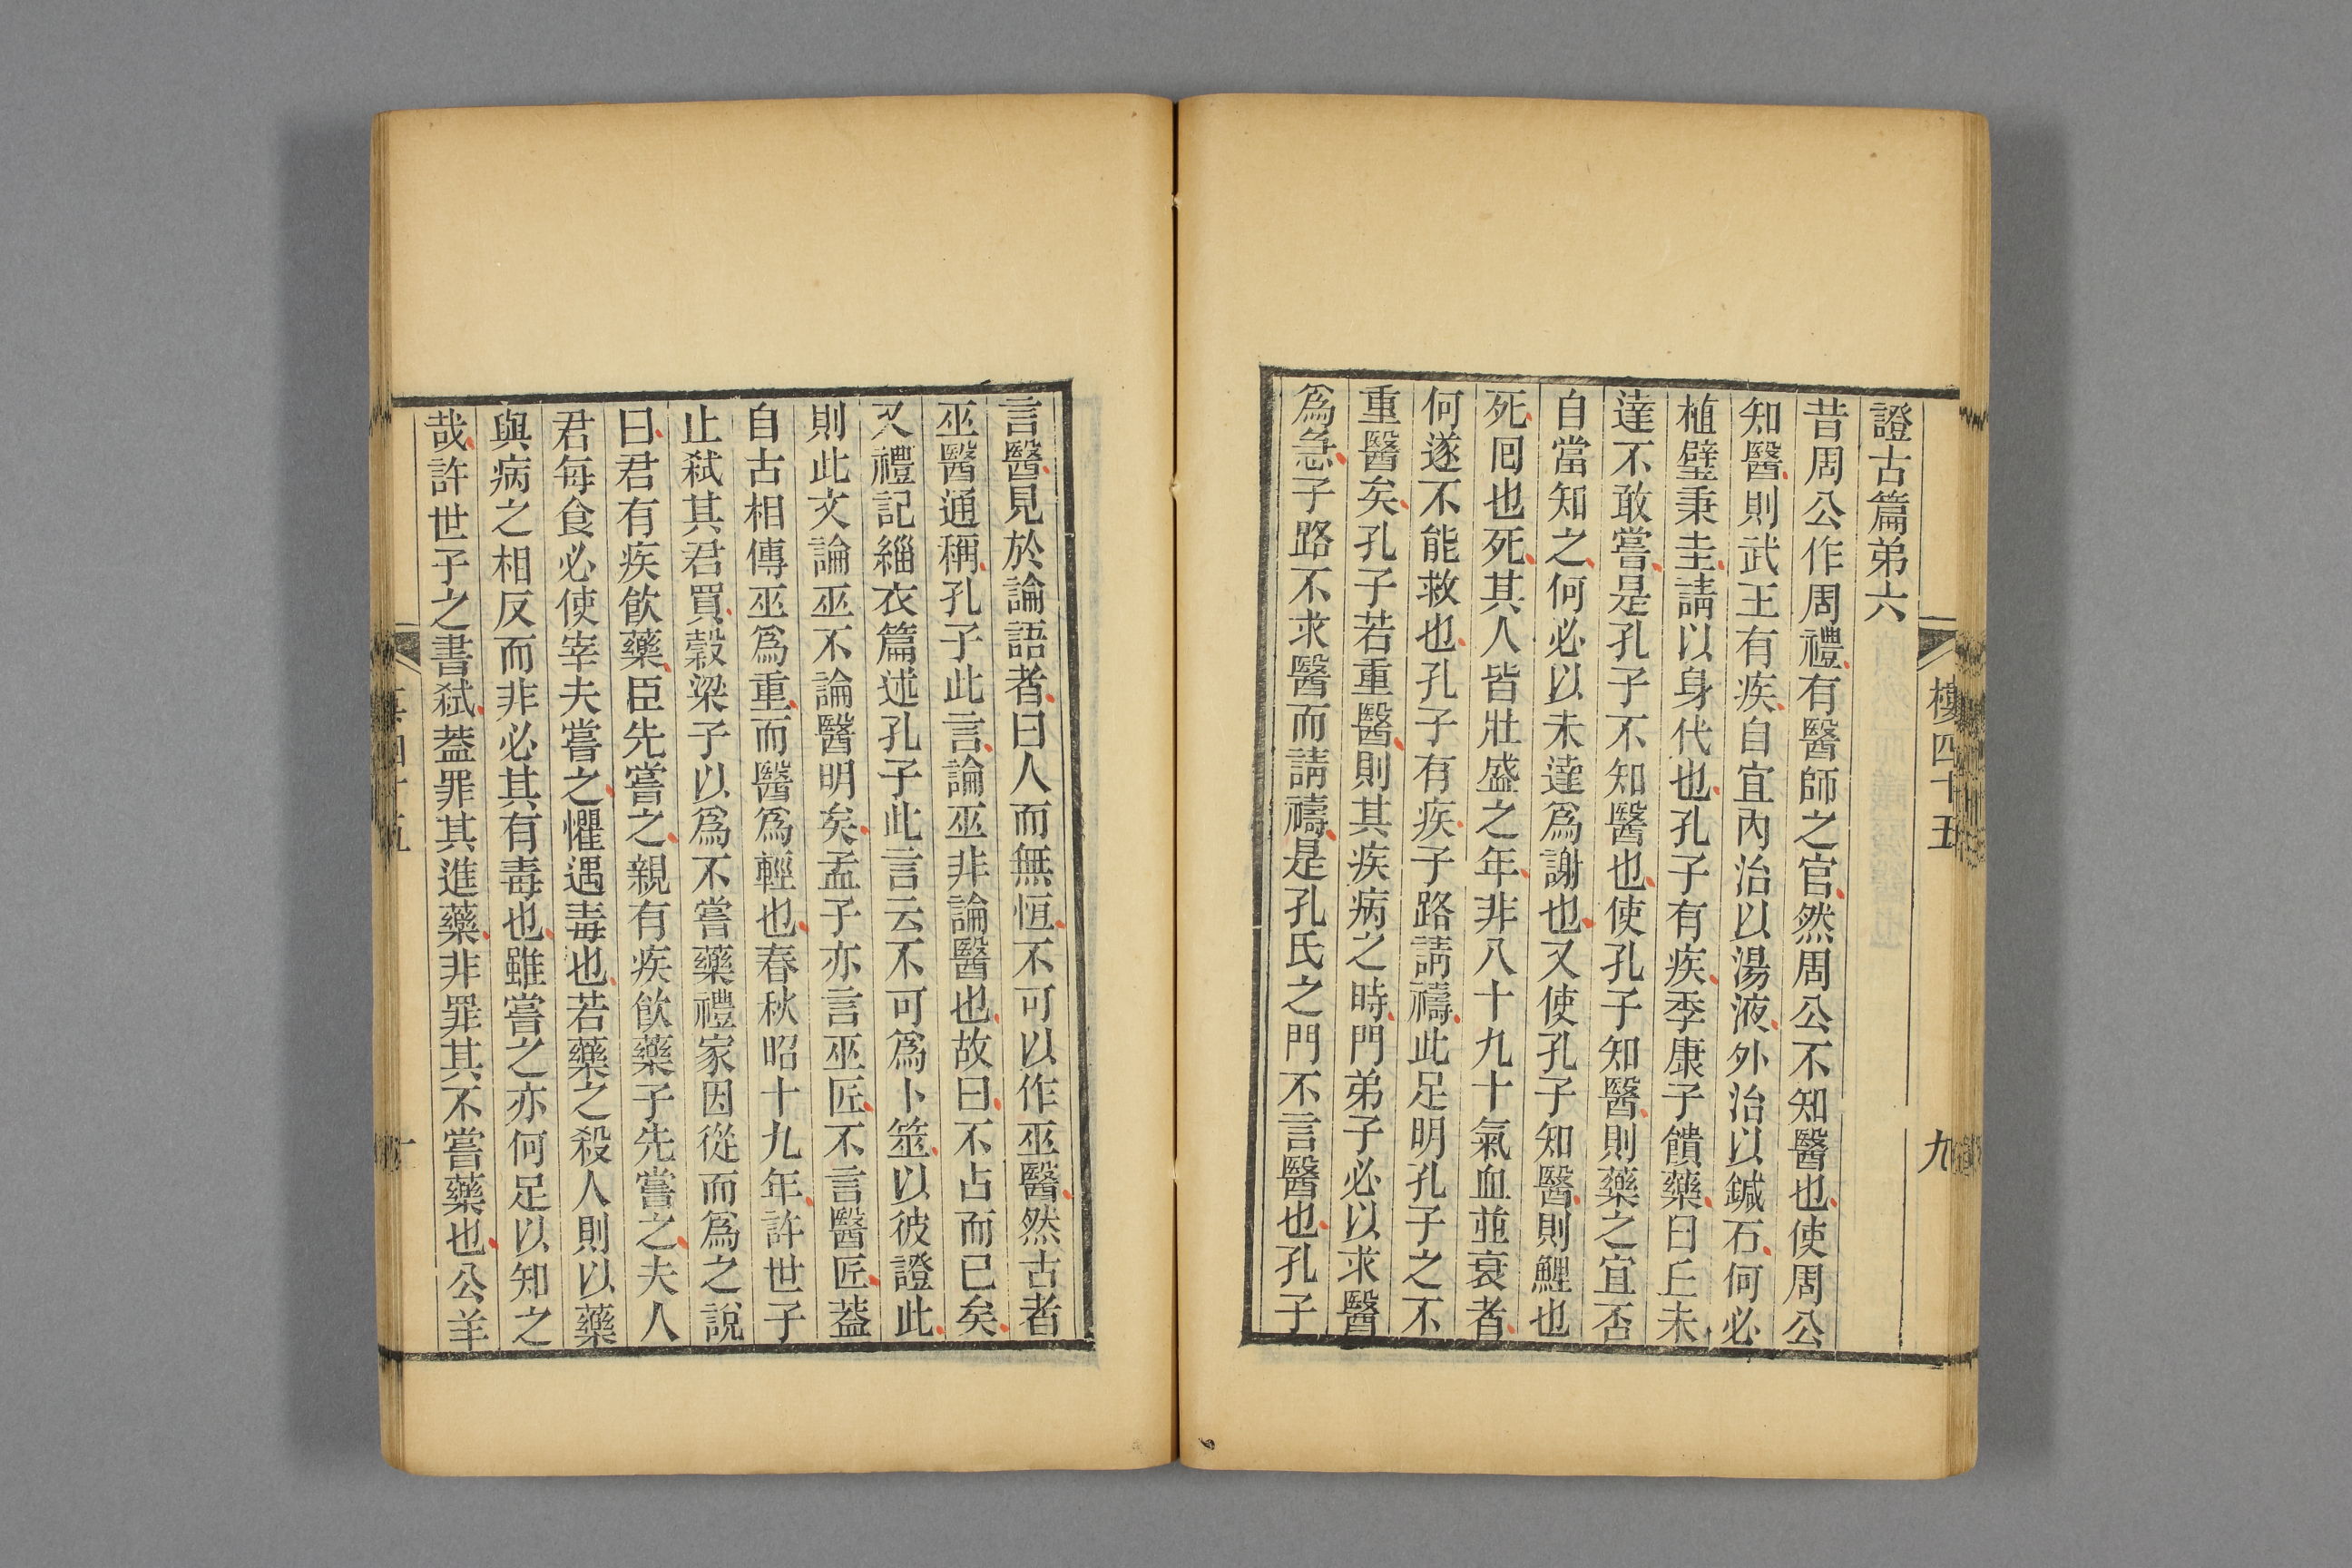 樓四十五
九
證古篇弟六
昔周公作周禮有醫師之官然周公不知醫也使周公
知醫則武王有疾自宜內治以湯液外治以鍼石何必
植璧秉圭請以身代也孔子有疾季康子饋藥曰丘未
達不敢嘗是孔子不知醫也使孔子知醫則藥之宜否
自當知之何必以未達爲謝也又使孔子知醫則鯉也
死回也死其人皆壯盛之年非八十九十氣血並衰者
何遂不能救也孔子有疾子路請禱此足明孔子之不
重醫矣孔子若重醫則其疾病之時門弟子必以求醫
爲急子路不求醫而請禱是孔氏之門不言醫也孔子
言醫見於論語者曰人而無恒不可以作巫醫然古者
巫醫通稱孔子此言論巫非論醫也故曰不占而已矣
又禮記緇衣篇述孔子此言云不可爲卜筮以彼證此
則此文論巫不論醫明矣孟子亦言巫匠不言醫匠葢
自古相傳巫爲重而醫爲輕也春秋昭十九年許世子
止弒其君買穀梁子以爲不嘗藥禮家因從而爲之說
曰君有疾飲藥臣先嘗之親有疾飲藥子先嘗之夫人
君每食必使宰夫嘗之懼遇毒也若藥之殺人則以藥
與病之相反而非必其有毒也雖嘗之亦何足以知之
哉許世子之書弒葢罪其進藥非罪其不嘗藥也公羊